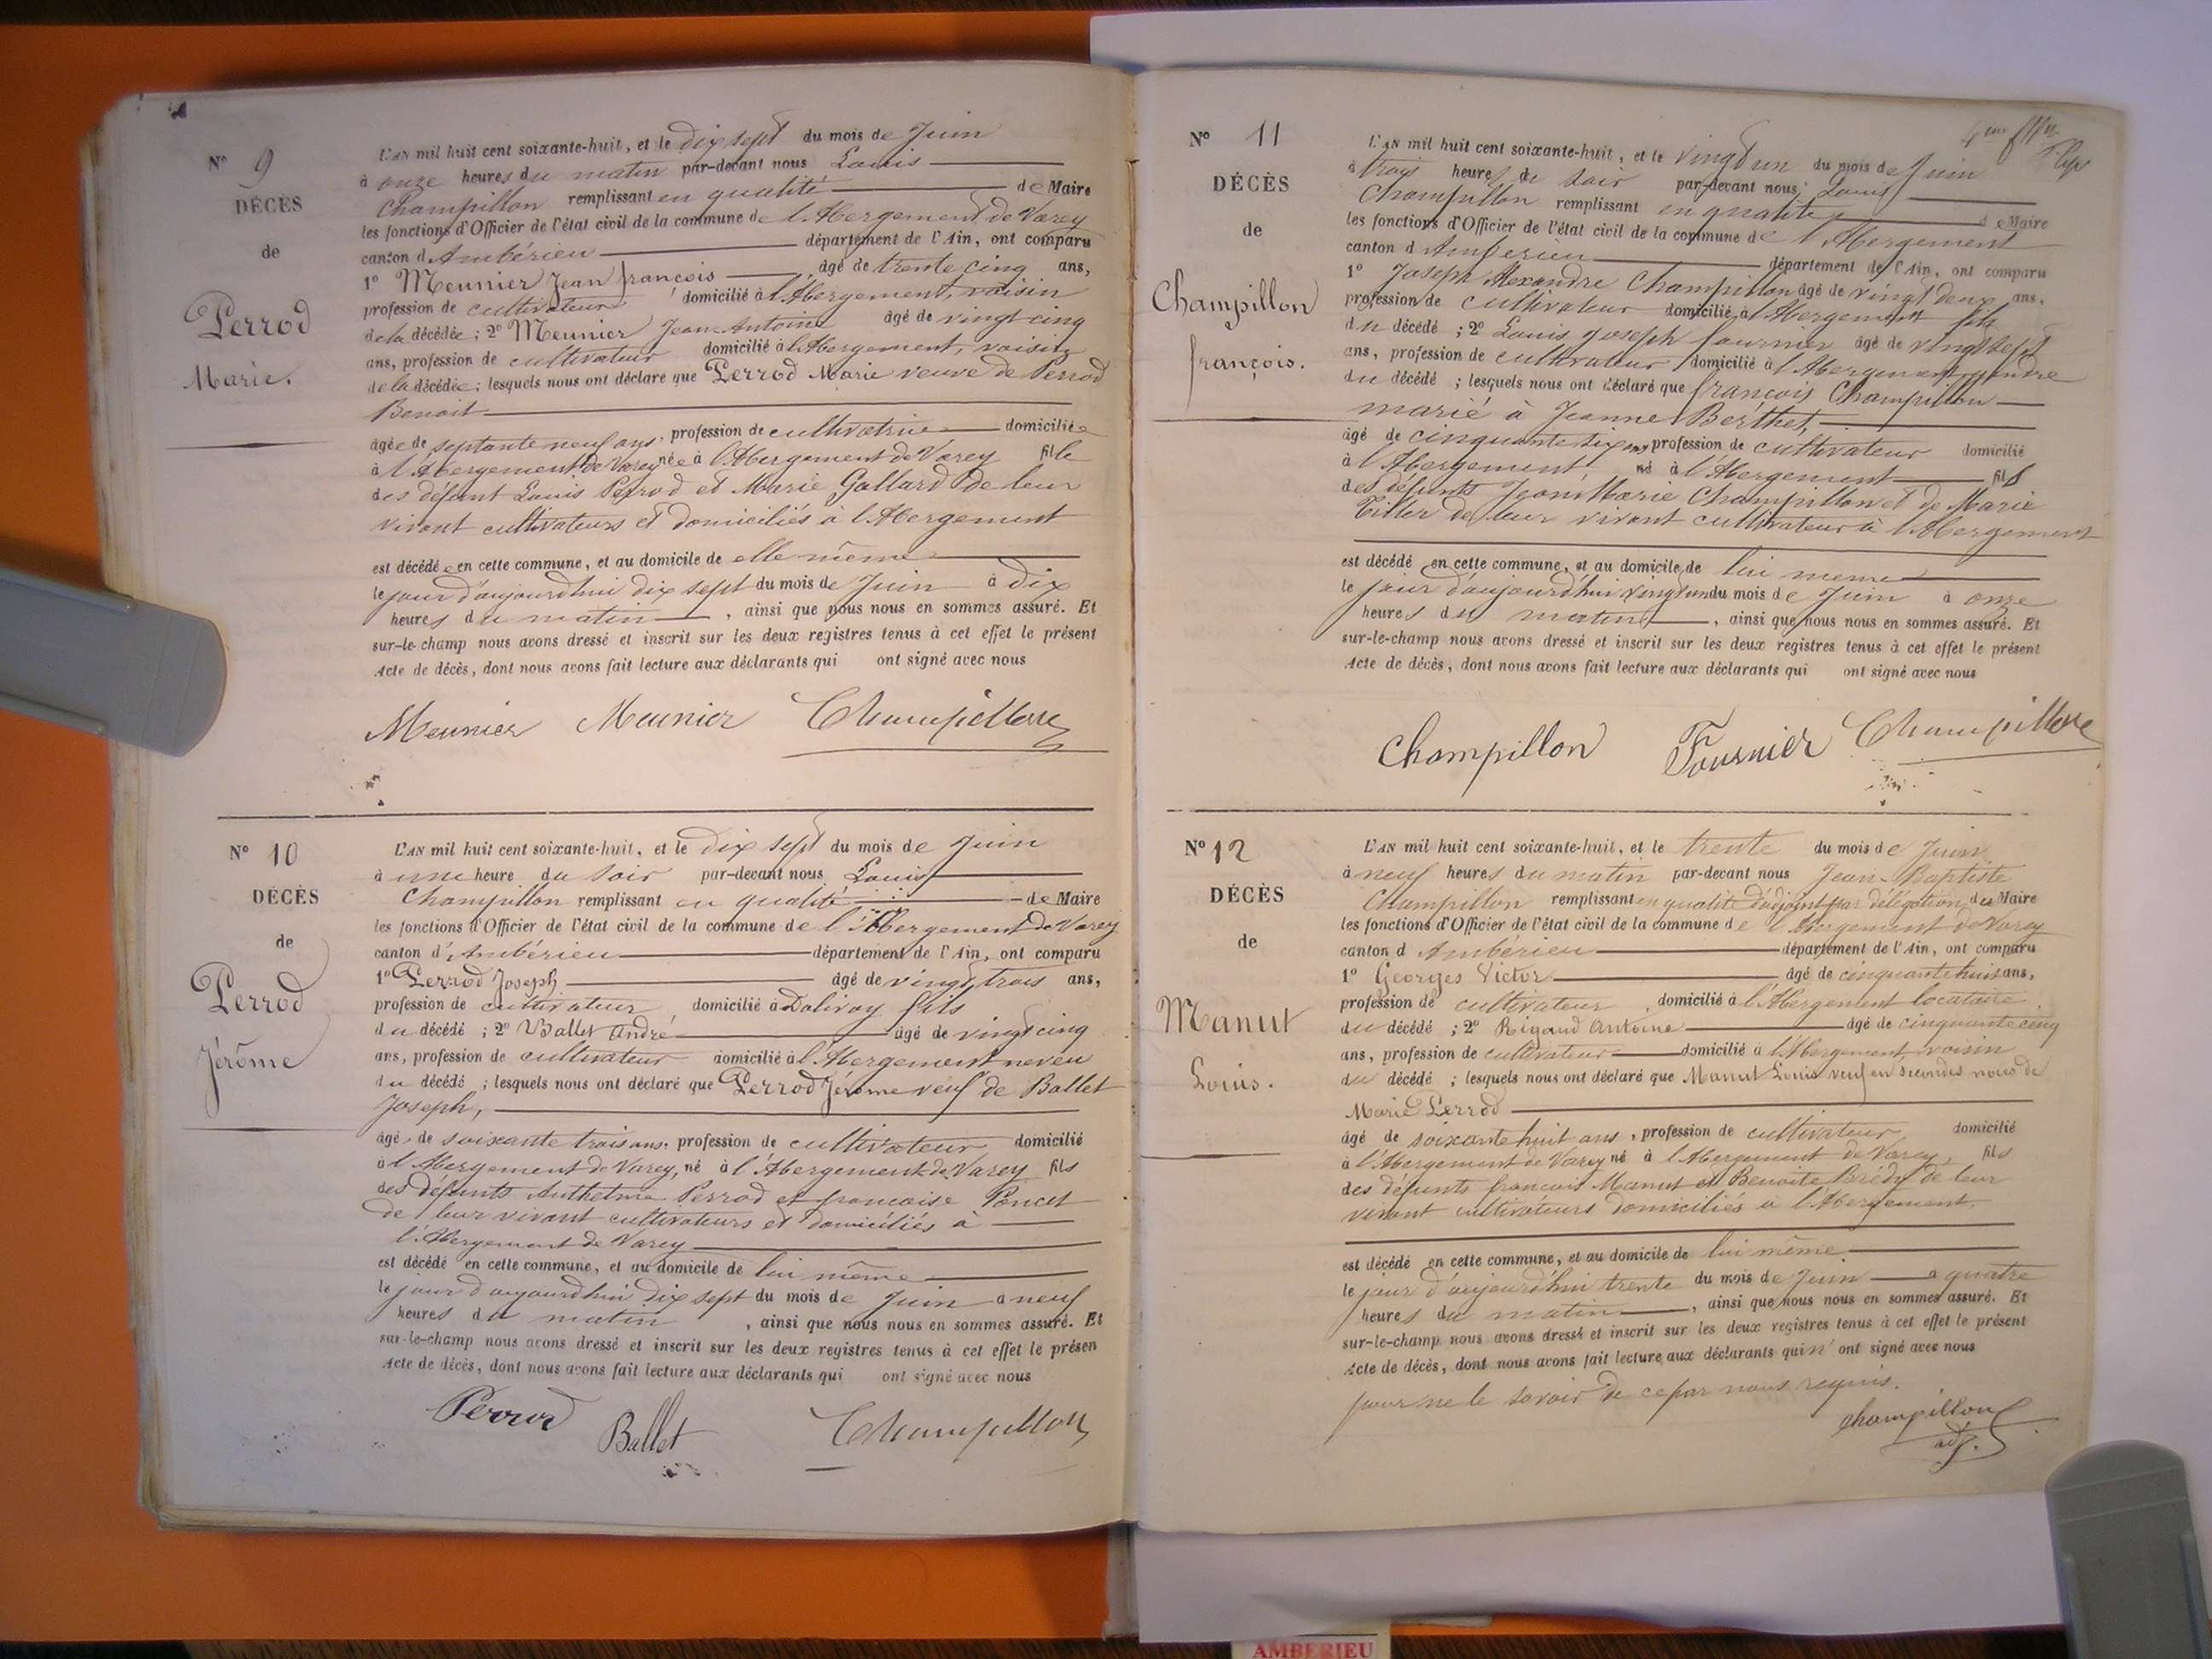 N° 9
DÉCÈS
de
Perrod
Marie.
L'AN mil huit cent soixante-huit, et le dix sept du mois de Juin
à onze heures du matin par-devant nous Louis
Champillon remplissant en qualité de Maire
les fonctions d'Officier de l'état civil de la commune de l'Abergement de Varey
canton d'Ambérieu département de l'Ain, ont comparu
1° Meunier Jean françois âgé de trente cinq ans,
profession de cultivateur domicilié à l'Abergement, voisin
de la décédée ; 2° Meunier Jean-Antoine âgé de vingt cinq
ans, profession de cultivateur domicilié à l'Abergement, voisin
de la décédée ; lesquels nous ont déclaré que Perrod Marie veuve de Perrod
Benoit
âgée de septante neuf ans, profession de cultivatrice domiciliée
à l'Abergement de Varey née à l'Abergement de Varey fille
des défunt Louis Perrod et Marie Gallard de leur
vivant cultivateurs et domiciliés à l'Abergement
est décédée en cette commune, et au domicile de elle même
le jour d'aujourdhui dix sept du mois de Juin à dix
heures du matin, ainsi que nous nous en sommes assuré. Et
sur-le-champ nous avons dressé et inscrit sur les deux registres tenus à cet effet le présent
Acte de décès, dont nous avons fait lecture aux déclarants qui ont signé avec nous
Meunier Meunier Champillon
N° 10
DÉCÈS
de
Perrod
Jérôme
L'AN mil huit cent soixante-huit, et le dix sept du mois de Juin
à une heure du soir par-devant nous Louis
Champillon remplissant en qualité de Maire
les fonctions d'Officier de l'état civil de la commune de l'Abergement de Varey
canton d'Ambérieu département de l'Ain, ont comparu
1° Perrod Joseph âgé de vingt trois ans,
profession de cultivateur domicilié à Dalivoy fils
du décédé ; 2° Ballet André âgé de vingt cinq
ans, profession de cultivateur domicilié à l'Abergement neveu
du décédé ; lesquels nous ont déclaré que Perrod Jérôme veuf de Ballet
Joseph,
âgé de soixante trois ans, profession de cultivateur domicilié
à l'Abergement de Varey, né à l'Abergement de Varey fils
des défunts Anthelme Perrod et francoise Poncet
de leur vivant cultivateurs et domiciliés à
l'Abergement de Varey
est décédé en cette commune, et au domicile de lui même
le jour d'aujourdhui dix sept du mois de Juin à neuf
heures du matin, ainsi que nous nous en sommes assuré. Et
sur-le-champ nous avons dressé et inscrit sur les deux registres tenus à cet effet le présen
Acte de décès, dont nous avons fait lecture aux déclarants qui ont signé avec nous
Perrod Ballet Champillon
N° 11
DÉCÈS
de
Champillon
françois.
L'AN mil huit cent soixante-huit, et le vingt un du mois de Juin
à trois heures du soir par-devant nous Louis
Champillon remplissant en qualité de Maire
les fonctions d'Officier de l'état civil de la commune de l'Abergement
canton d'Ambérieu département de l'Ain, ont comparu
1° Joseph Alexandre Champillon âgé de vingt deux ans,
profession de cultivateur domicilié à l'Abergement fils
du décédé ; 2° Louis Joseph fournier âgé de vingt sept
ans, profession de cultivateur domicilié à l'Abergement gendre
du décédé ; lesquels nous ont déclaré que françois Champillon
marié à Jeanne Berthet,
âgé de cinquante six ans profession de cultivateur domicilié
à l'Abergement né à l'Abergement fils
des défunts Jean Marie Champillon et de Marie
Tiller de leur vivant cultivateur à l'Abergement
est décédé en cette commune, et au domicile de lui meme
le jour d'aujourd'hui vingt un du mois de Juin à onze
heures du matin, ainsi que nous nous en sommes assuré. Et
sur-le-champ nous avons dressé et inscrit sur les deux registres tenus à cet effet le présent
Acte de décès, dont nous avons fait lecture aux déclarants qui ont signé avec nous
Champillon Fournier Champillon
N° 12
DÉCÈS
de
Manut
Louis.
L'AN mil huit cent soixante-huit, et le trente du mois de Juin
à neuf heures du matin par-devant nous Jean-Baptiste
Champillon remplissant en qualité d'adjoint par délégation du Maire
les fonctions d'Officier de l'état civil de la commune de l'Abergement de Varey
canton d'Ambérieu département de l'Ain, ont comparu
1° Georges Victor âgé de cinquante huit ans,
profession de cultivateur, domicilié à l'Abergement locataire
du décédé ; 2° Rigaud Antoine âgé de cinquante cinq
ans, profession de cultivateur domicilié à l'Abergement voisin
du décédé ; lesquels nous ont déclaré que Manut Louis veuf en secondes noces de
Marie Perrod
âgé de soixante huit ans, profession de cultivateur domicilié
à l'Abergement de Varey né à l'Abergement de Varey, fils
des défunts francois Manut et Benoite Brédy de leur
vivant cultivateurs domiciliés à l'Abergement
est décédé en cette commune, et au domicile de lui même
le jour d'aujourd'hui trente du mois de Juin à quatre
heures du matin, ainsi que nous nous en sommes assuré. Et
sur-le-champ nous avons dressé et inscrit sur les deux registres tenus à cet effet le présent
Acte de décès, dont nous avons fait lecture aux déclarants qui n'ont signé avec nous
pour ne le savoir de ce par nous requis.
Champillon
adj.
AMBERIEU